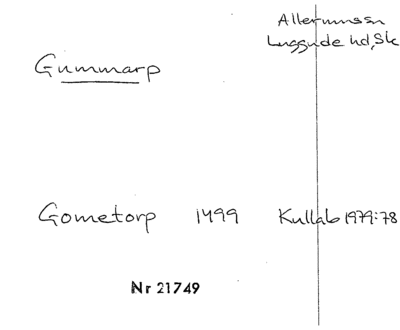 Allerums sn
Luggude hd, Sk
Gummarp
Gometorp 1499 Kullab 1979:78
Nr 21749